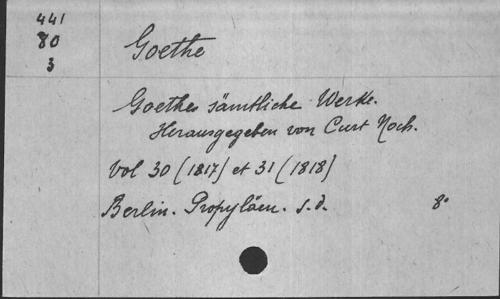 441
80
3
Goethe
Goethes sämtliche Werke.
Herausgegeben von Curt Noch.
Vol 30 (1817) et 31 (1818)
Berlin. Propyläen. s.d. 8°